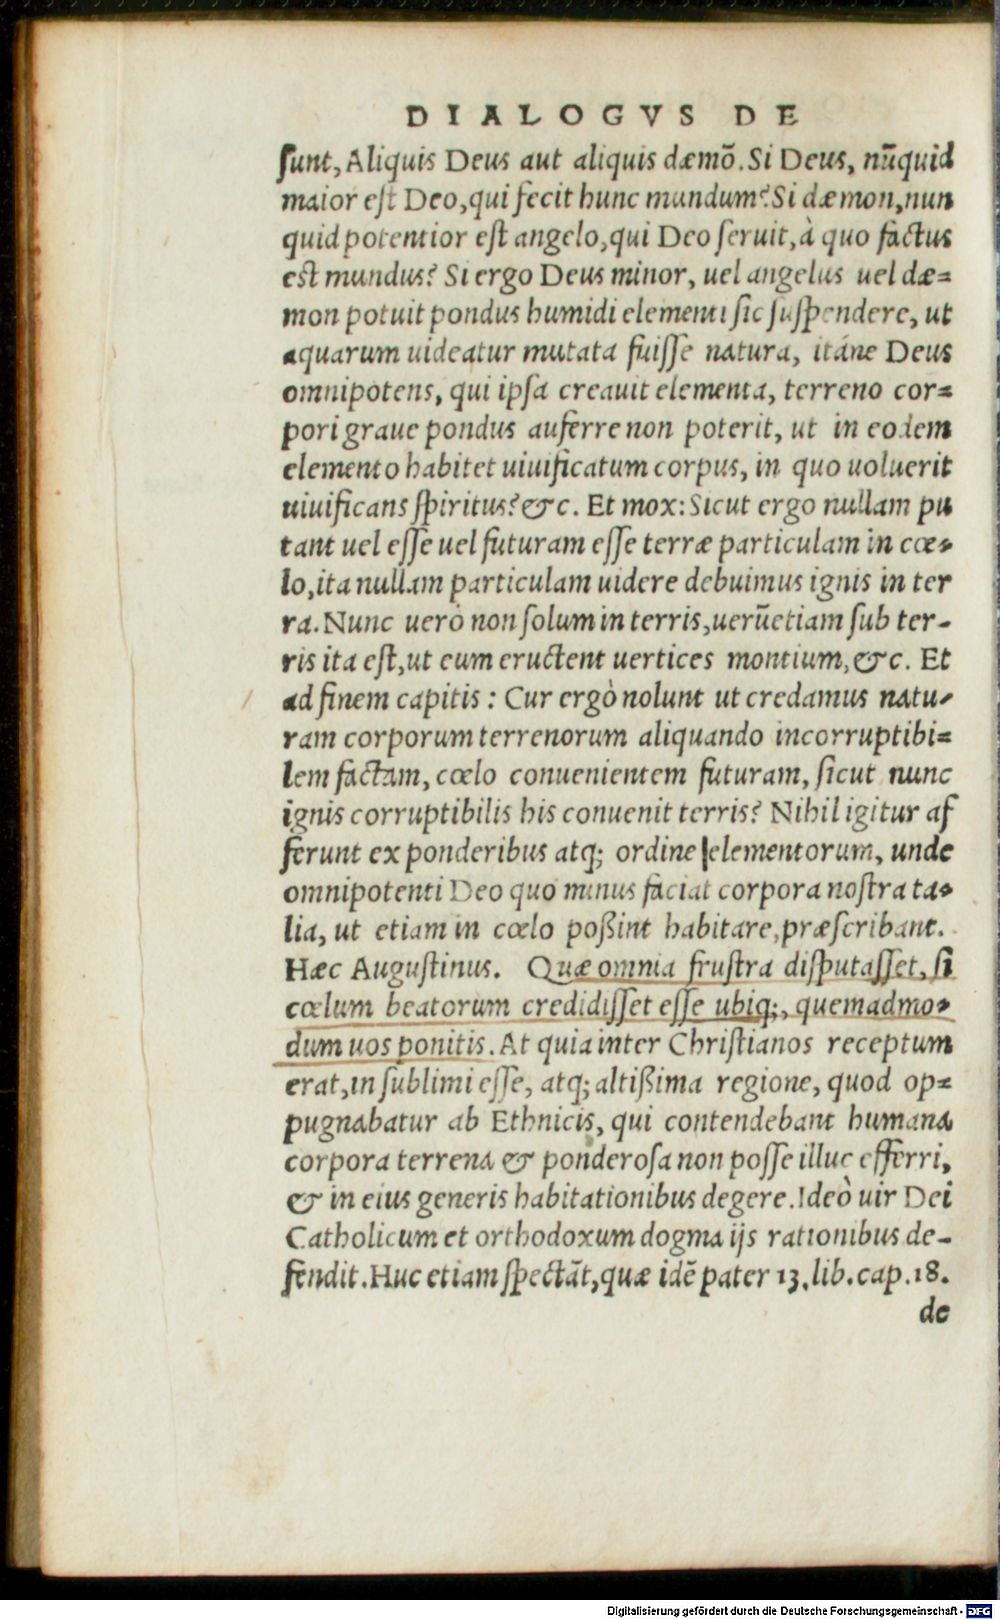 DIALOGVS DE
sunt, Aliquis Deus aut aliquis dæmõ. Si Deus, nũquid
maior est Deo, qui fecit hunc mundum? Si dæmon, nun
quid potentior est angelo, qui Deo seruit, à quo factus
est mundus? Si ergo Deus minor, uel angelus uel dæ=
mon potuit pondus humidi elementi sic suspendere, ut
aquarum uideatur mutata fuisse natura, itáne Deus
omnipotens, qui ipsa creauit elementa, terreno cor=
pori graue pondus auferre non poterit, ut in eodem
elemento habitet uiuificatum corpus, in quo uoluerit
uiuificans spiritus? &c. Et mox: Sicut ergo nullam pu
tant uel esse uel futuram esse terræ particulam in cœ-
lo, ita nullam particulam uidere debuimus ignis in ter
ra. Nunc uerò non solum in terris, uerũetiam sub ter-
ris ita est, ut eum eructent uertices montium, &c. Et
ad finem capitis: Cur ergò nolunt ut credamus natu-
ram corporum terrenorum aliquando incorruptibi=
lem factam, cœlo conuenientem futuram, sicut nunc
ignis corruptibilis his conuenit terris? Nihil igitur af
ferunt ex ponderibus atq; ordine elementorum, unde
omnipotenti Deo quo minus faciat corpora nostra ta-
lia, ut etiam in cœlo poßint habitare, præscribant.
Hæc Augustinus. Quæ omnia frustra disputasset, si
cœlum beatorum credidisset esse ubiq;, quemadmo-
dum uos ponitis. At quia inter Christianos receptum
erat, in sublimi esse, atq; altißima regione, quod op=
pugnabatur ab Ethnicis, qui contendebant humana
corpora terrena & ponderosa non posse illuc efferri,
& in eius generis habitationibus degere. Ideò uir Dei
Catholicum et orthodoxum dogma ijs rationibus de-
fendit. Huc etiam spectãt, quæ idẽ pater 13. lib. cap. 18.
de
Digitalisierung gefördert durch die Deutsche Forschungsgemeinschaft - DFG